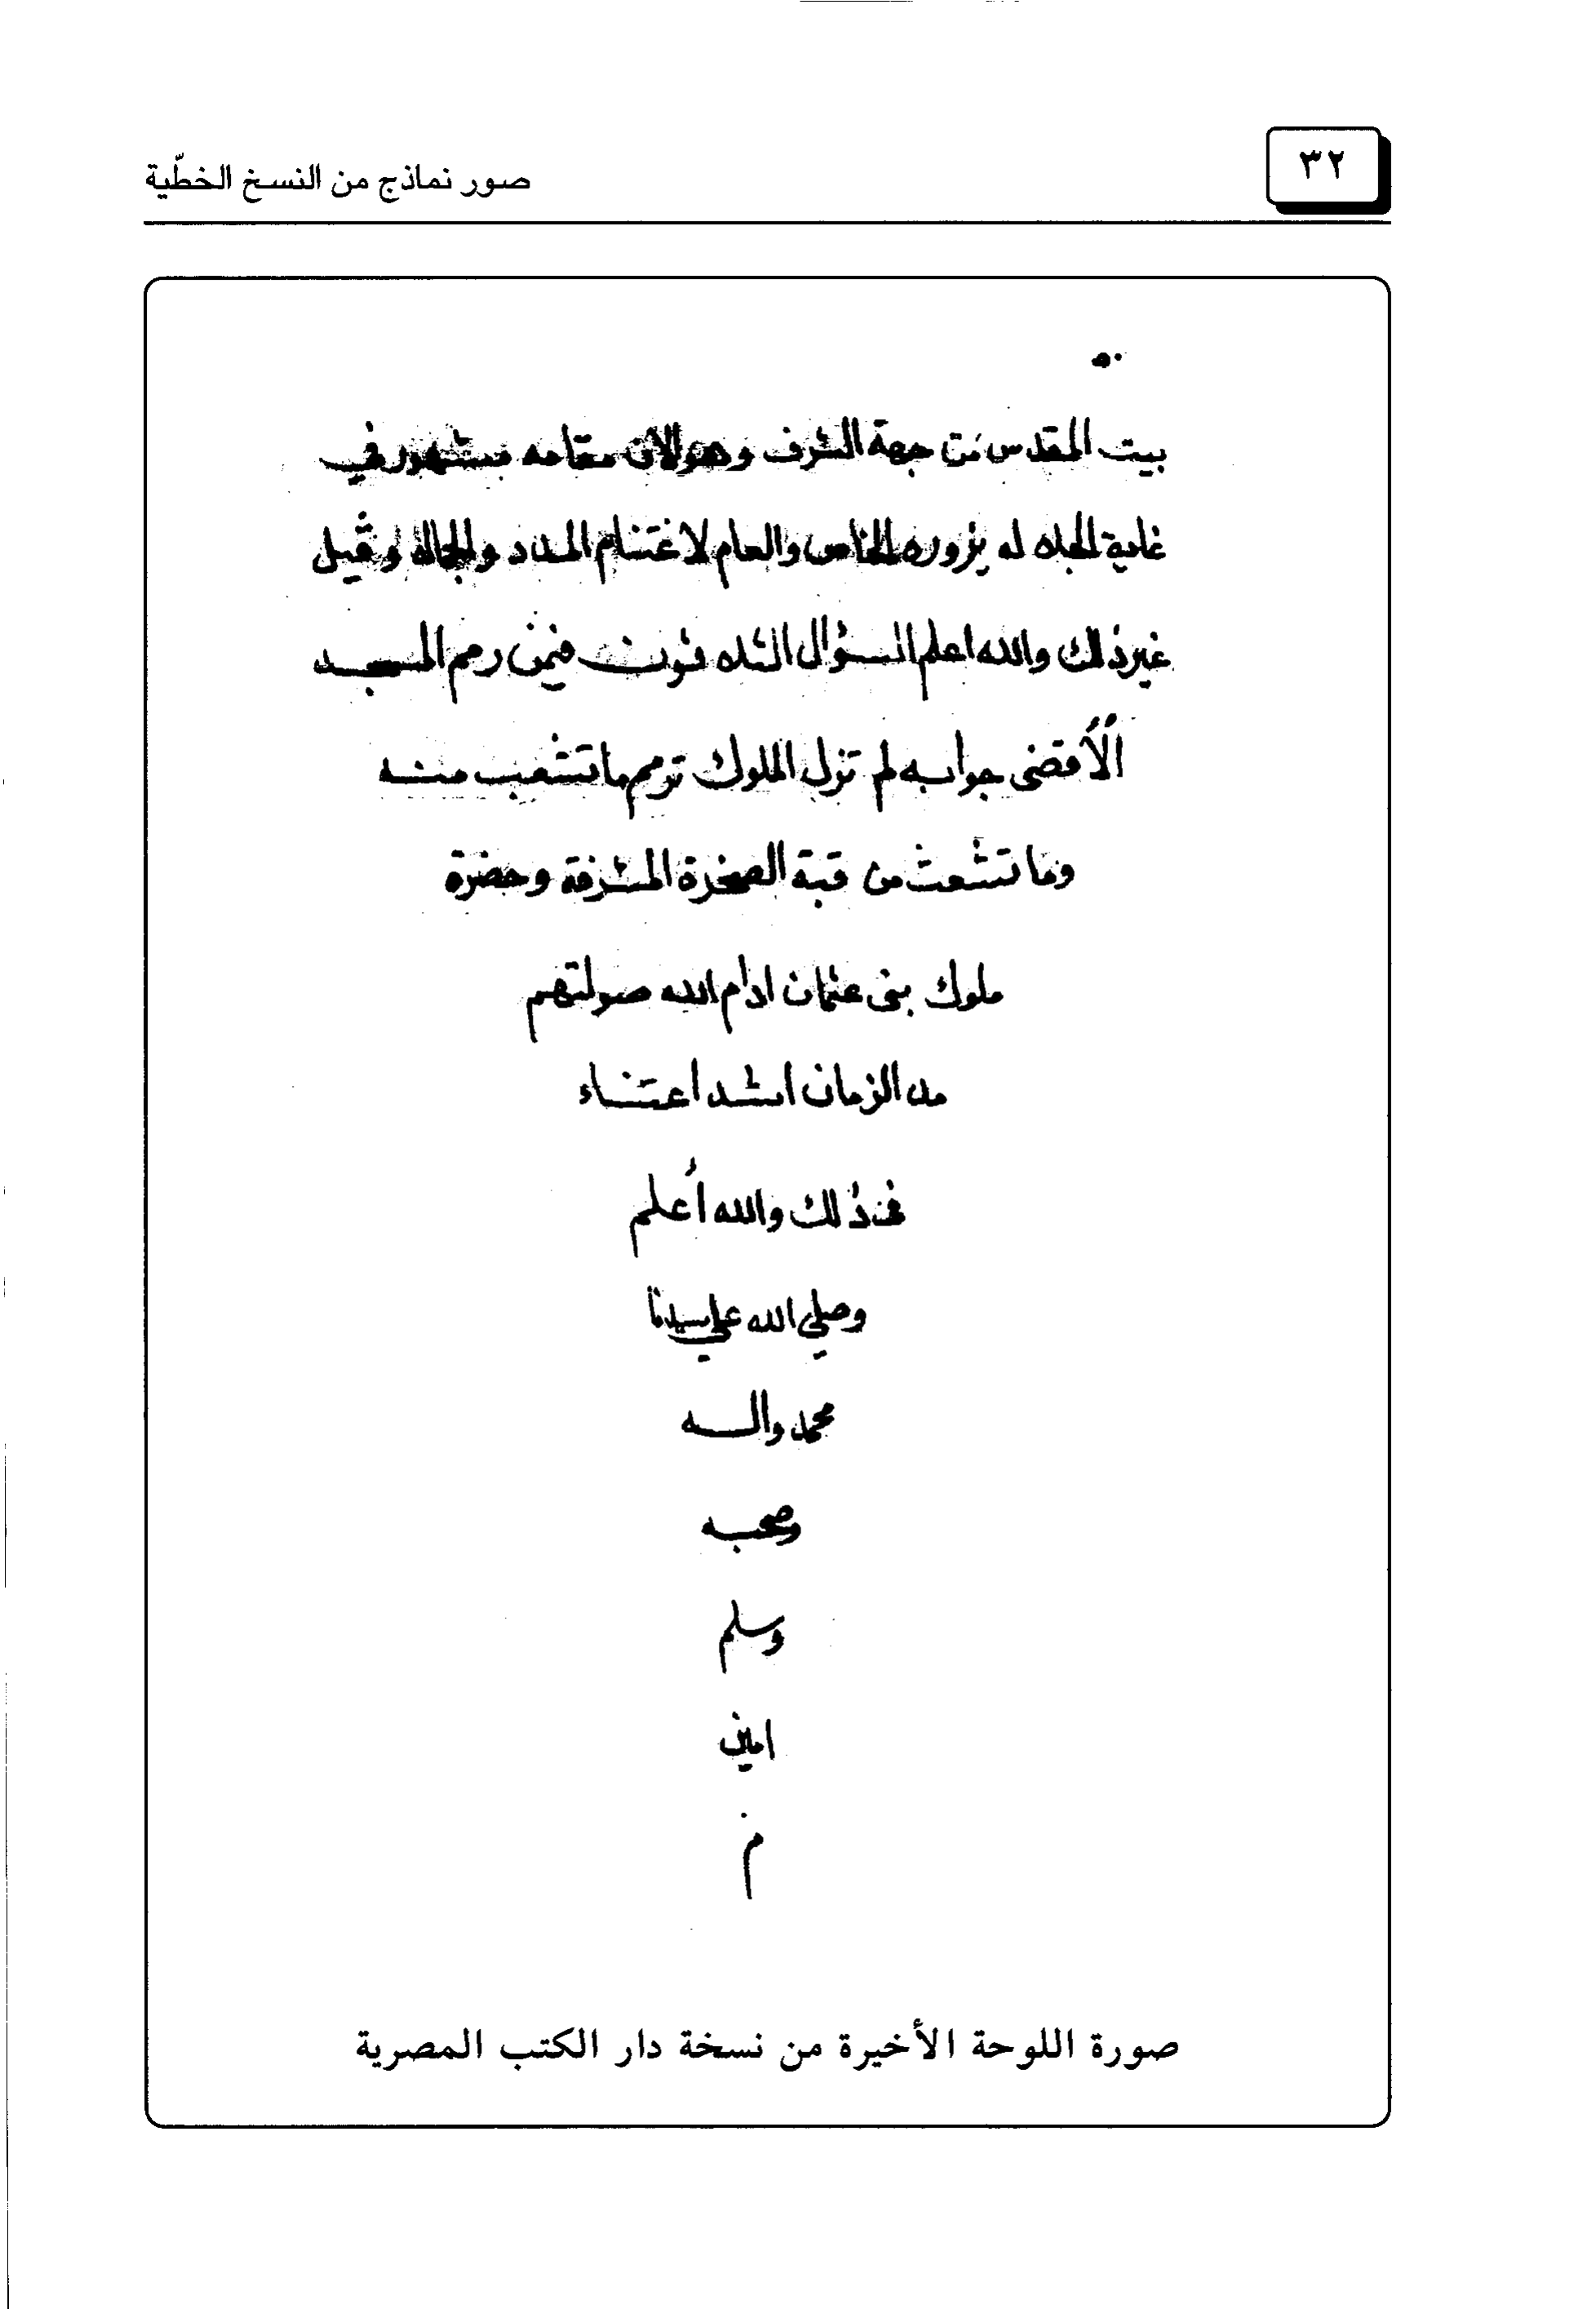 ٣٢
صور نماذج من النسخ الخطّية
بيت المقدس من جهة الشرف وهو الان مقامه مشهور في
غاية الجلاله يزوره الخاص والعام لاغتنام المدد و وقيل
غير ذلك والله اعلم السؤال الثلاثون فيمن رمم المسجد
الأقصى جوابه لم تزل الملوك ترمم ما تشعب منه
وما تشعث من قبة الصخرة المشرفة وحضرة
ملوك بنى عثمان ادام الله صولتهم
مدا الزمان اشد اعتناء
فى ذلك والله أعلم
وصلي الله علي سيدنا
محمد واله
وصحبه
وسلم
امين
م
صورة اللوحة الأخيرة من نسخة دار الكتب المصرية